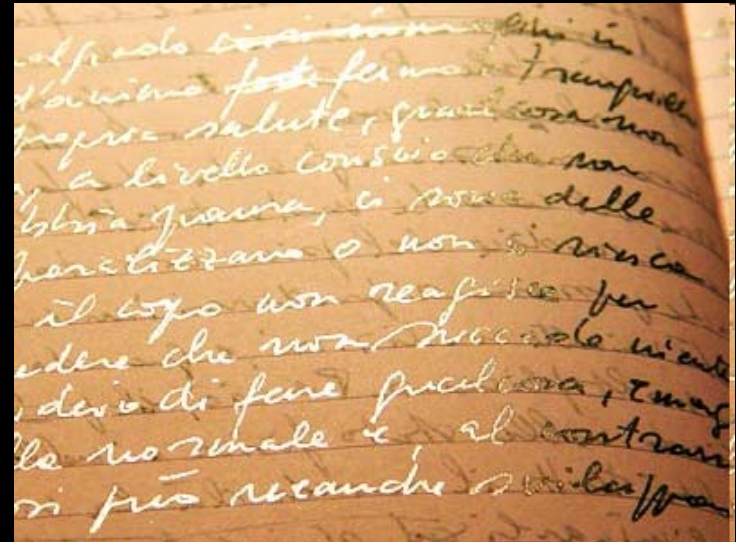 in
d'animo fermo tranquillo
propria salute, qualcosa non
a livello conscio che non
abbia paura, ci sono delle
paralizzano o non si riesca
il corpo non reagisce per
che non succeda niente
di fare qualcosa, emerg
normale e, al contrario
si può neanche sviluppa